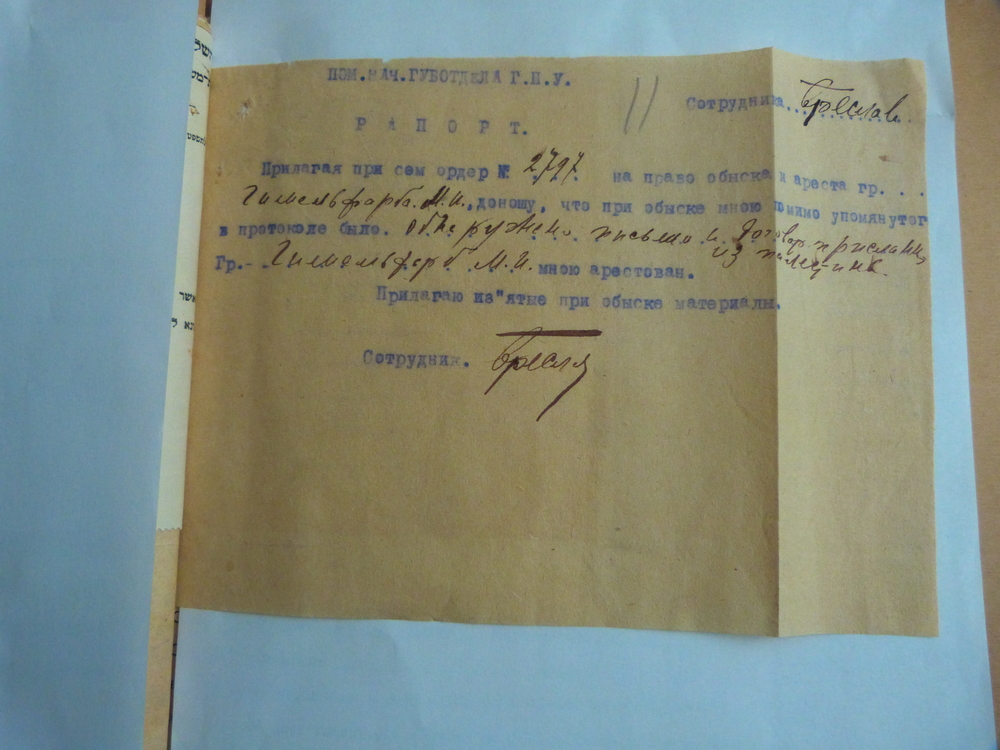 ПОМ.НАЧ.ГУБОТДЕЛА Г.П.У.
11
Сотрудника...Бреслав..
Р А П О Р Т.
Прилагая при сем ордер № 2797 на право обыска и ареста гр. . .
Гимельфарба.М.И.,доношу, что при обыске мною помимо упомянутог
в протоколе было. обнаружено письмо и договор присланные
из палестины.
Гр.-.Гимельфарб М.И.мною арестован.
Прилагаю из"ятые при обыске материалы.
Сотрудник. Бресла